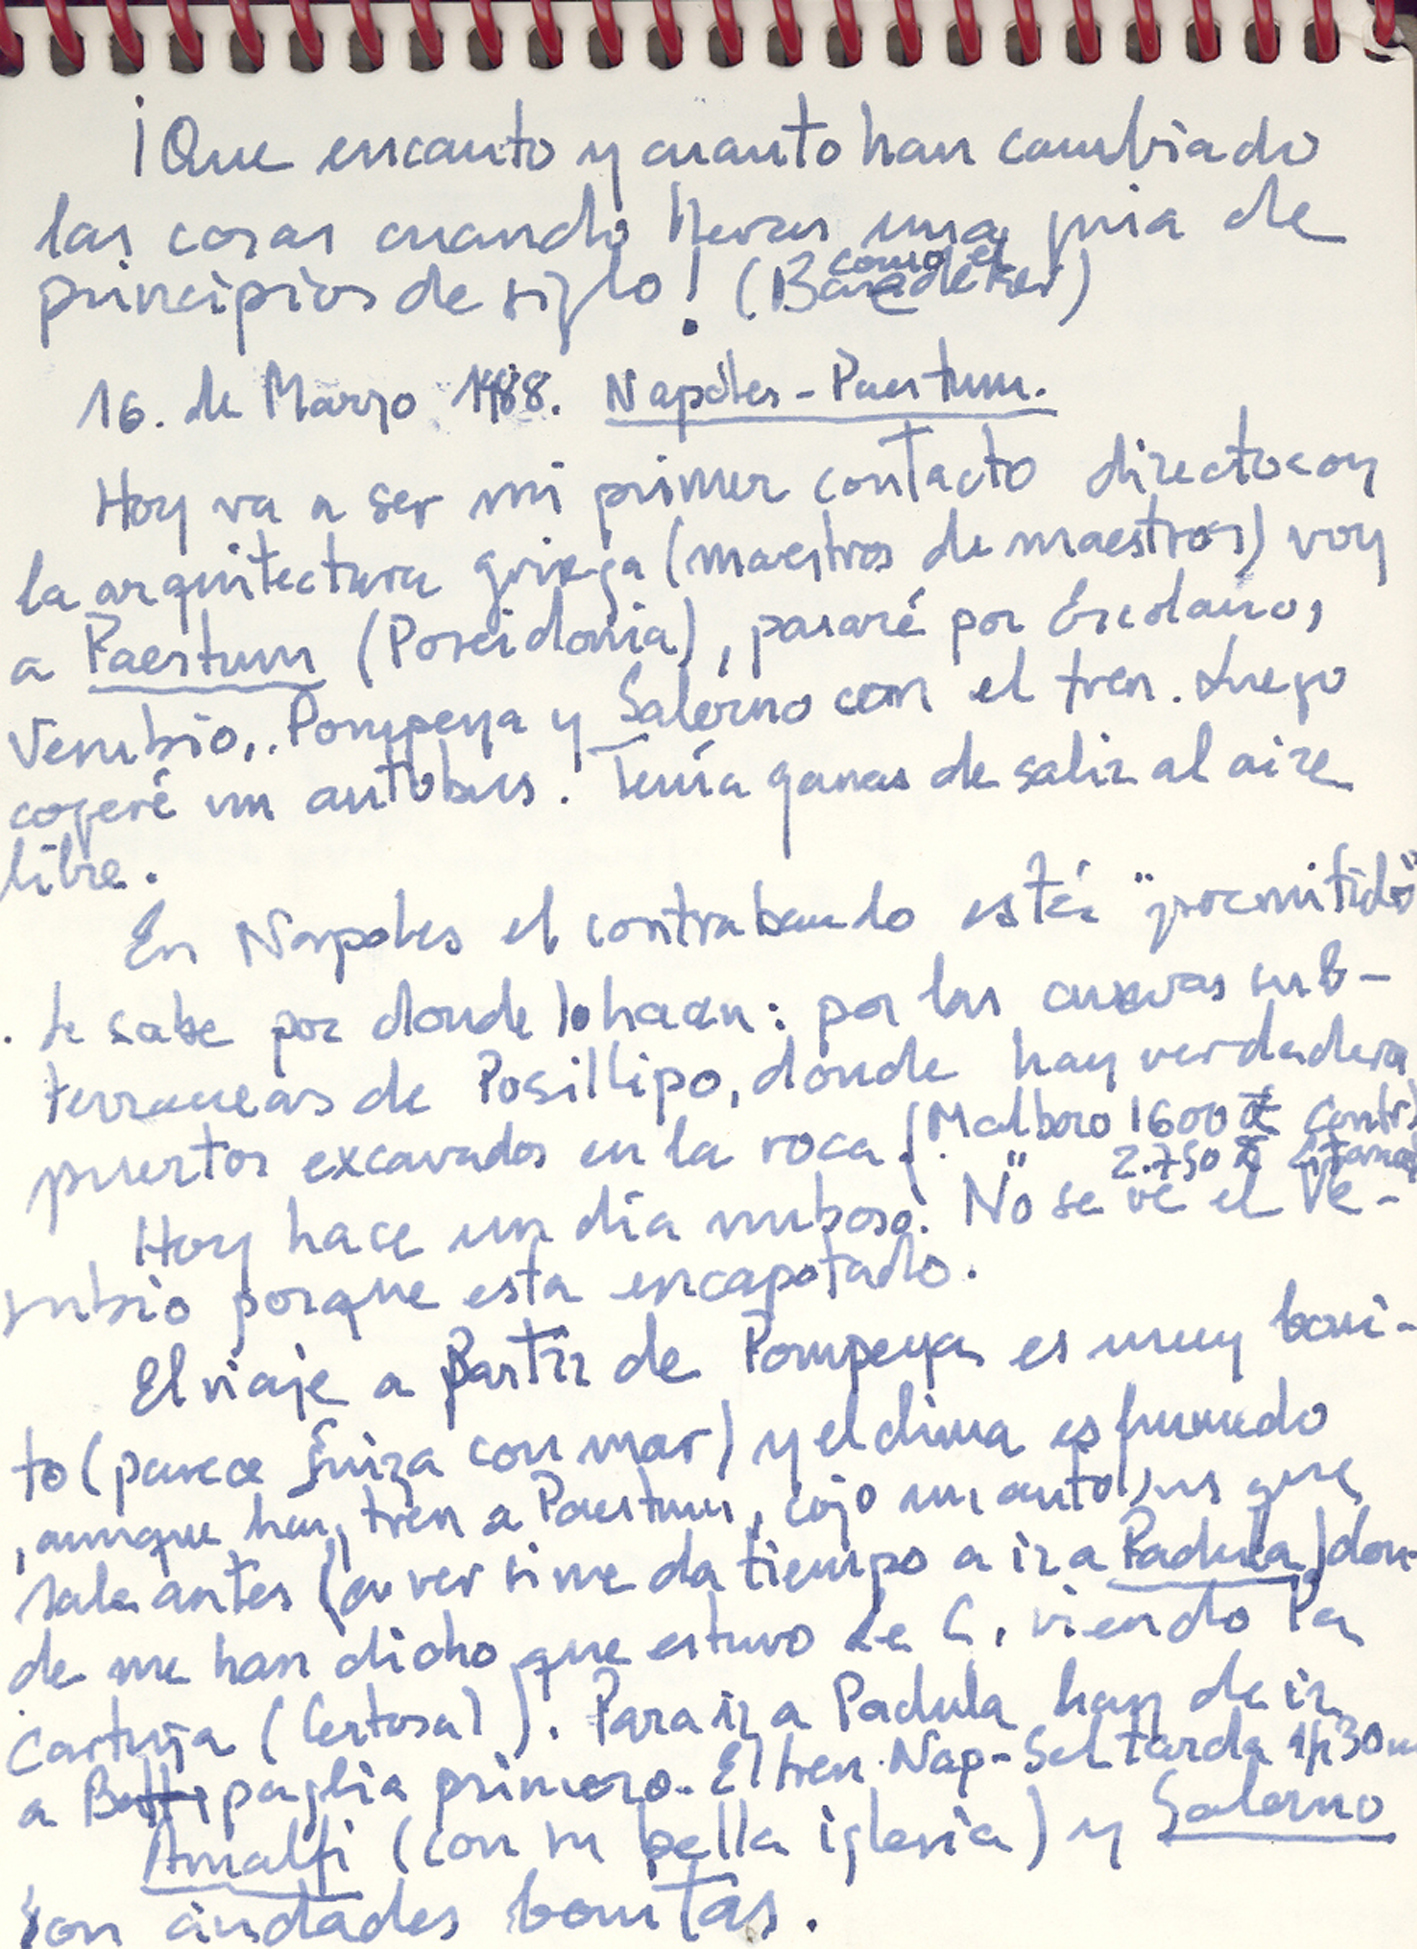 ¡Que encanto y cuanto han cambiado
las cosas cuando llevas una guia de
principios de siglo! (como el Baedeker)
16. de Marzo 1988. Napoles - Paestum.
Hoy va a ser mi primer contacto directo con
la arquitectura griega (maestros de maestros) voy
a Paestum (Poseidonia), pasaré por Ercolano,
Vesubio, Pompeya y Salerno con el tren. Luego
cogeré un autobus. Tenía ganas de salir al aire
libre.
En Napoles el contrabando está "permitido"
. Se sabe por donde lo hacen: por las cuevas sub-
terraneas de Posillipo, donde hay verdaderos
puertos excavados en la roca. (Malboro 1600 contr.
" 2.750
Hoy hace un día nuboso. No se ve el Ve-
subio porque esta encapotado.
El viaje a partir de Pompeya es muy boni-
to (parece Suiza con mar) y el clima es humedo
, aunque hay tren a Paestum, cojo un autobus que
sale antes (a ver si me da tiempo a ir a Padula) don-
de me han dicho que estuvo Le C, viendo la
Cartuja (Certosa). Para ir a Padula hay de ir
a Battipaglia primero. El tren Nap-Sal tarda 1h 30m
Amalfi (con su bella iglesia) y Salerno
son ciudades bonitas.